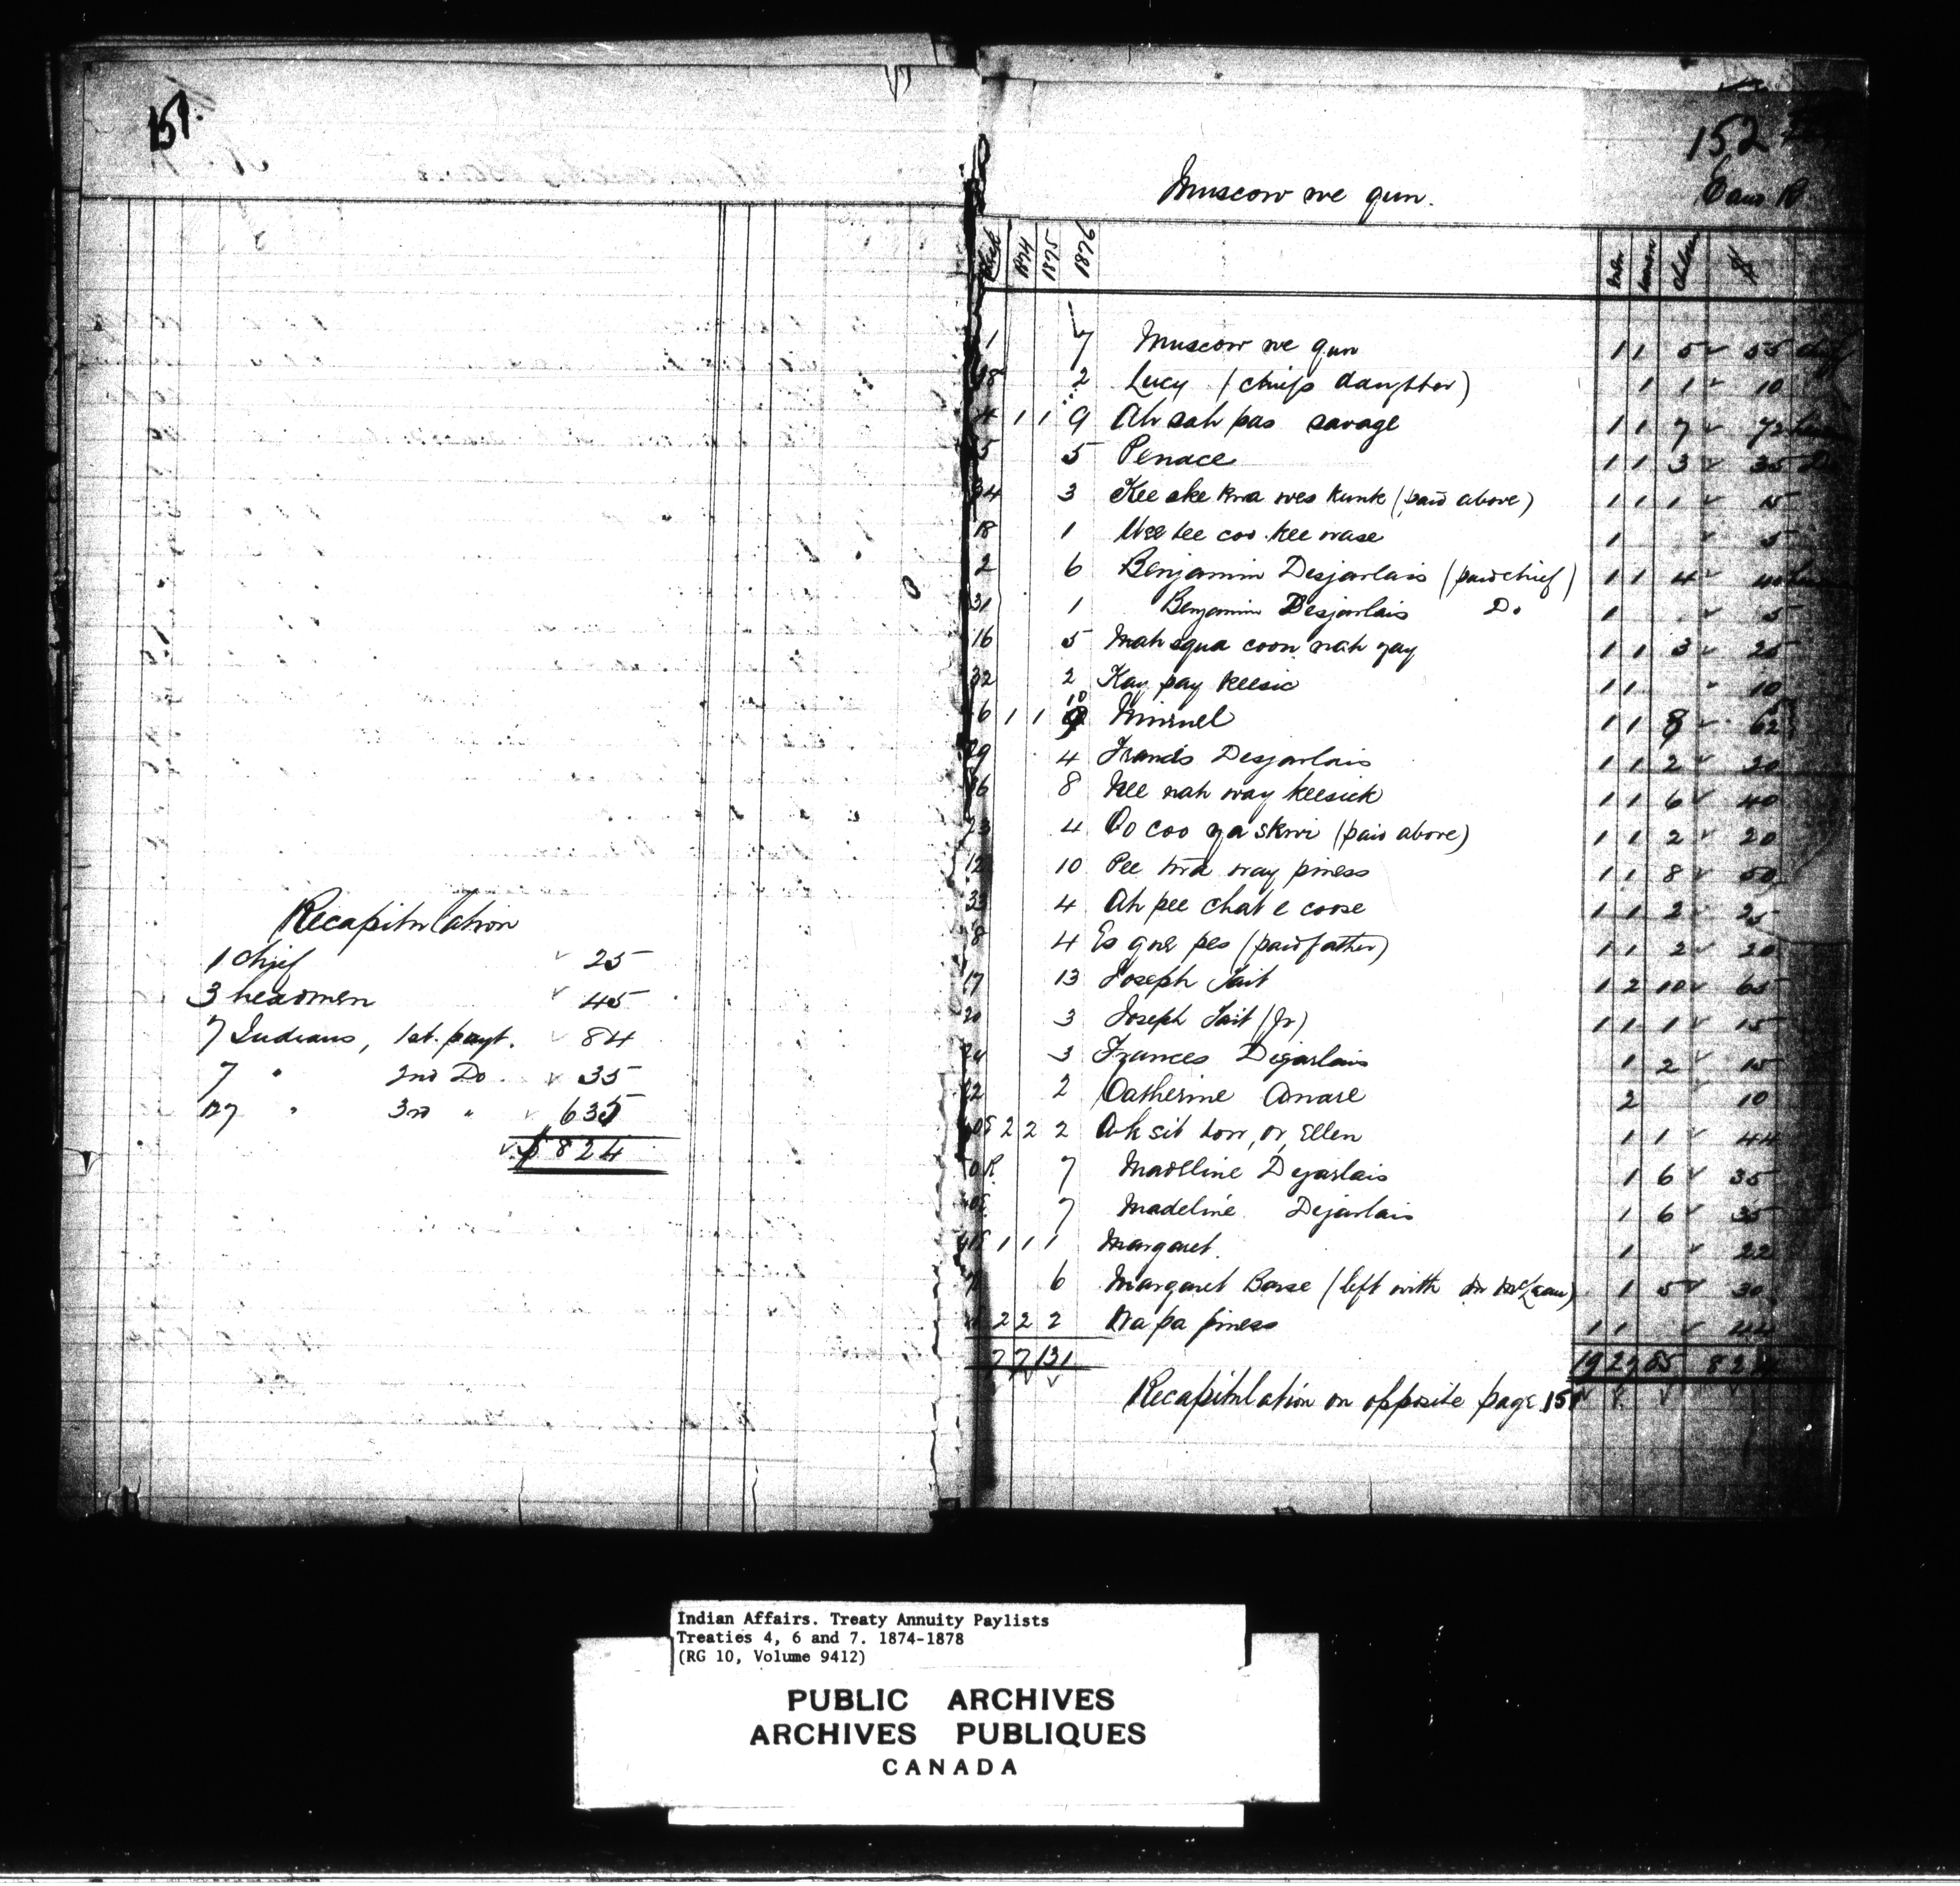 151.
Recapitulation
1 Chief 25
3 headmen 45
7 Indians, 1st. payt. 84
7 " 2nd Do. 35
127 " 3rd " 635
$824
152
Muscow we gun.
1874 1875 1876 Men Women Children $
1 7 Muscow we gun 1 1 5 55 Chief
28 2 Lucy (chiefs daughter) 1 1 10
4 1 1 9 Ah sah pas savage 1 1 7 72
5 5 Penace 1 1 3 35
34 3 Kee ske kwa wes kunk (paid above) 1 1 1 15
18 1 tee coo kee wase 1 5
2 6 Benjamin Desjarlais (paid chief) 1 1 4 40
31 1 Benjamin Desjarlais Do 1 5
16 5 Mah squa coon nah gay 1 1 3 25
32 2 Kay pay keesic 1 1 10
6 1 1 10 1 1 8 62
29 4 Francis Desjarlais 1 1 2 20
8 Kee nah way keesick 1 1 6 40
23 4 Oo coo ya skwi (paid above) 1 1 2 20
12 10 Pee twa way piness 1 1 8 50
33 4 Ah pee chat e coose 1 1 2 25
8 4 Es que pes (paid father) 1 1 2 20
17 13 Joseph Tait 1 2 10 65
20 3 Joseph Tait (Jr) 1 1 1 15
24 3 Frances Dejarlais 1 2 15
22 2 Catherine 2 10
2 2 2 Ah sit tow, or, Ellen 1 1 44
7 Madeline Dejarlais 1 6 35
7 Madeline Dejarlais 1 6 35
1 1 1 Margaret. 1 22
7 6 Margaret (left with Mr McLean) 1 5 30
2 2 2 Wa pa piness 1 1 44
7 7 131 19 27 85 824
Recapitulation on opposite page 151
Indian Affairs. Treaty Annuity Paylists
Treaties 4, 6 and 7. 1874-1878
(RG 10, Volume 9412)
PUBLIC ARCHIVES
ARCHIVES PUBLIQUES
CANADA